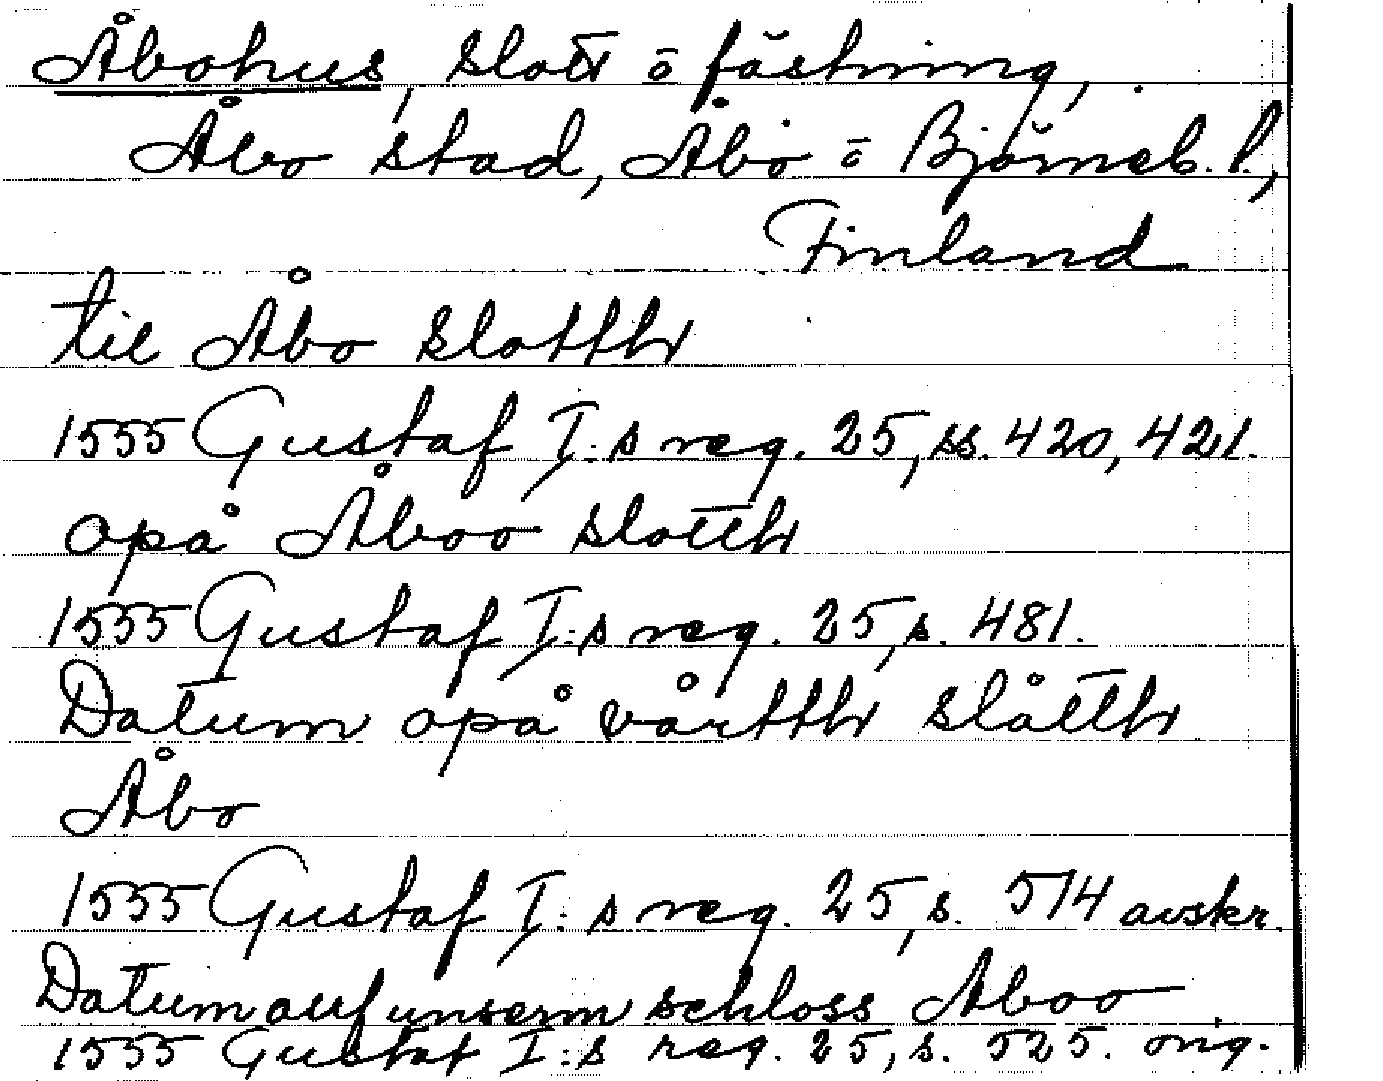 Åbohus, slott ō fästning,
Åbo stad, Åbo ō Björneb. l.,
Finland
til Åbo slotth
1555 Gustaf I:s reg. 25, ss. 420, 421.
opå Åboo slotth
1555 Gustaf I:s reg. 25, s. 481.
Datum opå vårtth slåtth
Åbo
1555 Gustaf I:s reg. 25, s. 514 avskr.
Datum auf unserm schloss Aboo
1555 Gustaf I:s reg. 25, s. 525. orig.